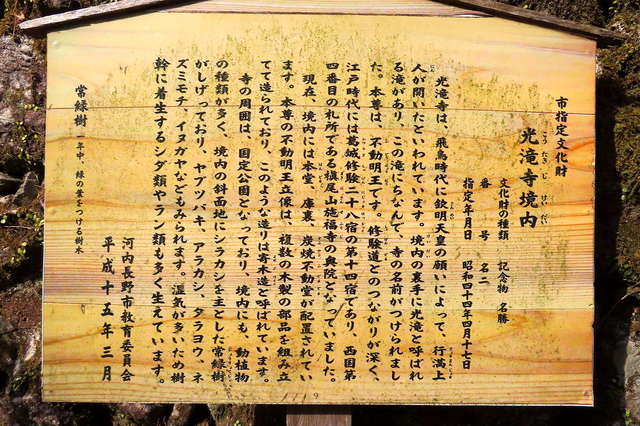 市指定文化財
光滝寺境内
こう たき じ けいだい
文化財の種類 記念物 名勝
番号 名二
指定年月日 昭和四十四年四月十七日
光滝寺は、飛鳥時代に欽明天皇の願いによって、行満上
人が開いたといわれています。境内の裏手に光滝と呼ばれ
る滝があり、この滝にちなんで、寺の名前がつけられまし
た。本尊は、不動明王です。修験道とのつながりが深く、
江戸時代には葛城修験二十八宿の第十四宿であり、西国第
四番目の札所である槇尾山施福寺の奥院となっていました。
現在、境内には本堂、庫裏、炭焼不動堂が配置されてい
ます。本尊の不動明王立像は、複数の木製の部品を組み立
てて造られており、このような造りは寄木造と呼ばれています。
寺の周囲は、国定公園となっており、境内にも、動植物
の種類が多く、境内の斜面地にシラカシを主とした常緑樹
がしげっており、ヤブツバキ、アラカシ、タラヨウ、ネ
ズミモチ、イヌガヤなどもみられます。湿気が多いため樹
幹に着生するシダ類やラン類も多く生えています。
常緑樹 一年中、緑の葉をつける樹木
河内長野市教育委員会
平成十五年三月